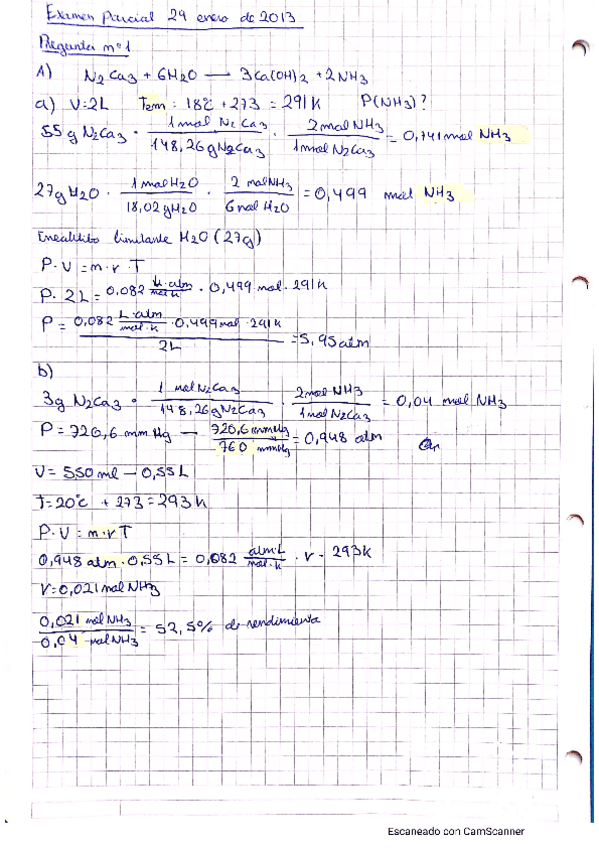 Examen Parcial 29 enero de 2013
Pregunta nº1
A) N2Ca3 + 6H2O → 3Ca(OH)2 + 2NH3
a) V=2L Tem: 18ºC + 273 = 291K P(NH3)?
55 g N2Ca3 · 1 mol N2Ca3 / 148,26 g N2Ca3 · 2 mol NH3 / 1 mol N2Ca3 = 0,741 mol NH3
27g H2O · 1 mol H2O / 18,02 g H2O · 2 mol NH3 / 6 mol H2O = 0,499 mol NH3
limitante H2O (27g)
P·V = n·r·T
P· 2L = 0,082 L·atm / mol·K · 0,499 mol · 291K
P = 0,082 L·atm / mol·K · 0,499 mol · 291K / 2L = 5,95 atm
b)
3g N2Ca3 · 1 mol N2Ca3 / 148,26 g N2Ca3 · 2 mol NH3 / 1 mol N2Ca3 = 0,04 mol NH3
P = 720,6 mm Hg → 720,6 mmHg / 760 mmHg = 0,948 atm
V = 550 ml → 0,55L
T = 20ºC + 273 = 293K
P·V = n·r·T
0,948 atm · 0,55L = 0,082 atm·L / mol·K · r · 293K
r = 0,021 mol NH3
0,021 mol NH3 / 0,04 mol NH3 = 52,5% de rendimiento
Escaneado con CamScanner